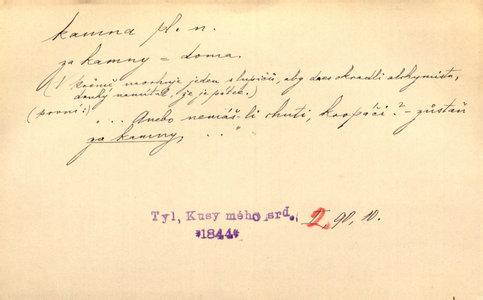 kamna pl. n.
za kamny = doma.
(V krčmě navrhuje jeden z lupičů, aby dnes okradli alchymistu,
druhý namítal, že je pátek.)
(první:) „... Anebo nemáš-li chuti, kropáči? – zůstaň
za kamny, ..."
Tyl, Kusy mého srd. 2, 90, 10.
*1844*